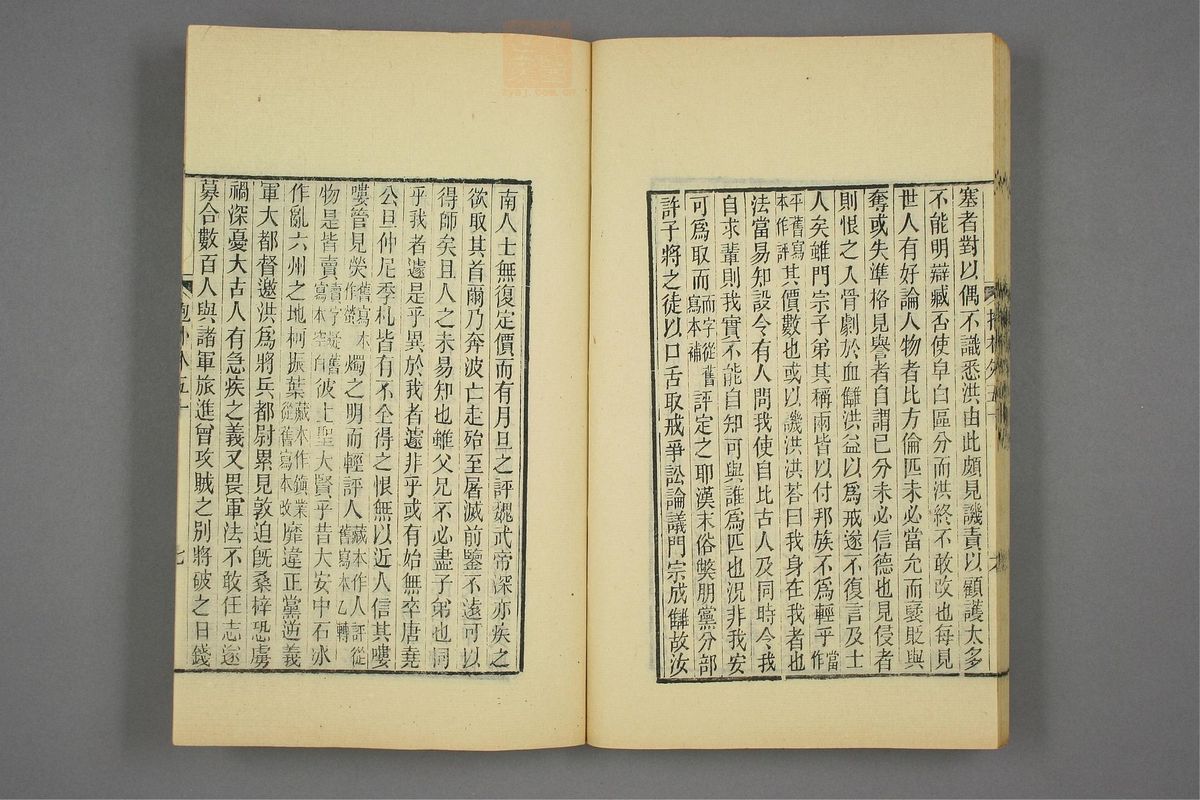 塞者對以偶不識悉洪由此頗見譏責以顧護太多
不能明辯臧否使皁白區分而洪終不敢改也每見
世人有好論人物者比方倫匹未必當允而褒貶與
奪或失準格見譽者自謂已分未必信德也見侵者
則恨之入骨劇於血讎洪益以爲戒遂不復言及士
人矣雖門宗子弟其稱兩皆以付邦族不爲輕乎當作平舊寫本作評其價數也或以譏洪洪荅曰我身在我者也
法當易知設令有人問我使自比古人及同時令我
自求輩則我實不能自知可與誰爲匹也況非我安
可爲取而而字從舊寫本補評定之耶漢末俗獘朋黨分部
許子將之徒以口舌取戒爭訟論議門宗成讎故汝
南人士無復定價而有月旦之評魏武帝深亦疾之
欲取其首爾乃奔波亡走殆至屠滅前鑒不遠可以
得師矣且人之未易知也雖父兄不必盡子弟也同
乎我者遽是乎異於我者遽非乎或有始無卒唐堯
公旦仲尼季札皆有不全得之恨無以近人信其嘍
嘍管見熒舊寫本作螢燭之明而輕評人藏本作人評從舊寫本乙轉
物是皆賣賣字疑舊寫本空白彼上聖大賢乎昔大安中石冰
作亂六州之地柯振葉藏本作鎮業從舊寫本改靡違正黨逆義
軍大都督邀洪爲將兵都尉累見敦迫旣桑梓恐虜
禍深憂大古人有急疾之義又畏軍法不敢任志遂
募合數百人與諸軍旅進曾攻賊之别將破之日錢
抱朴外五十
七